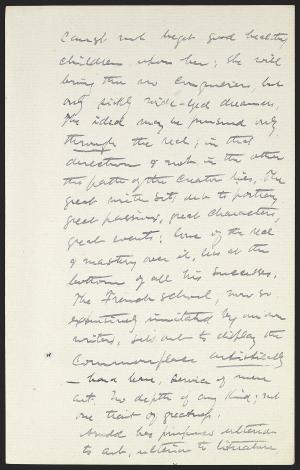 cannot beget good healthy
children upon her; she will
bring him no conquerors, but
only sickly wide-eyed dreamers.
The ideal may be pursued only
through the real; in that
direction & not in the other
the path of the Creator lies. The
great writer sets out to portray
great passions, great characters,
great events; love of the real
& mastery over it, lies at the
bottom of all his successes.
The French School, now so
extensively imitated by our own
writers, sets out to display the
Commonplace artistically
— hence, service of mere
art. No depth of any kind; not
one trait of greatness.
has purposes ulterior
to art, ulterior to literature